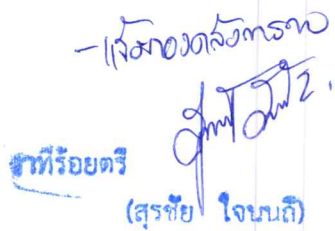 - แจ้งกองคลังทราบ
ว่าที่ร้อยตรี
(สุรชัย ใจนนถี)